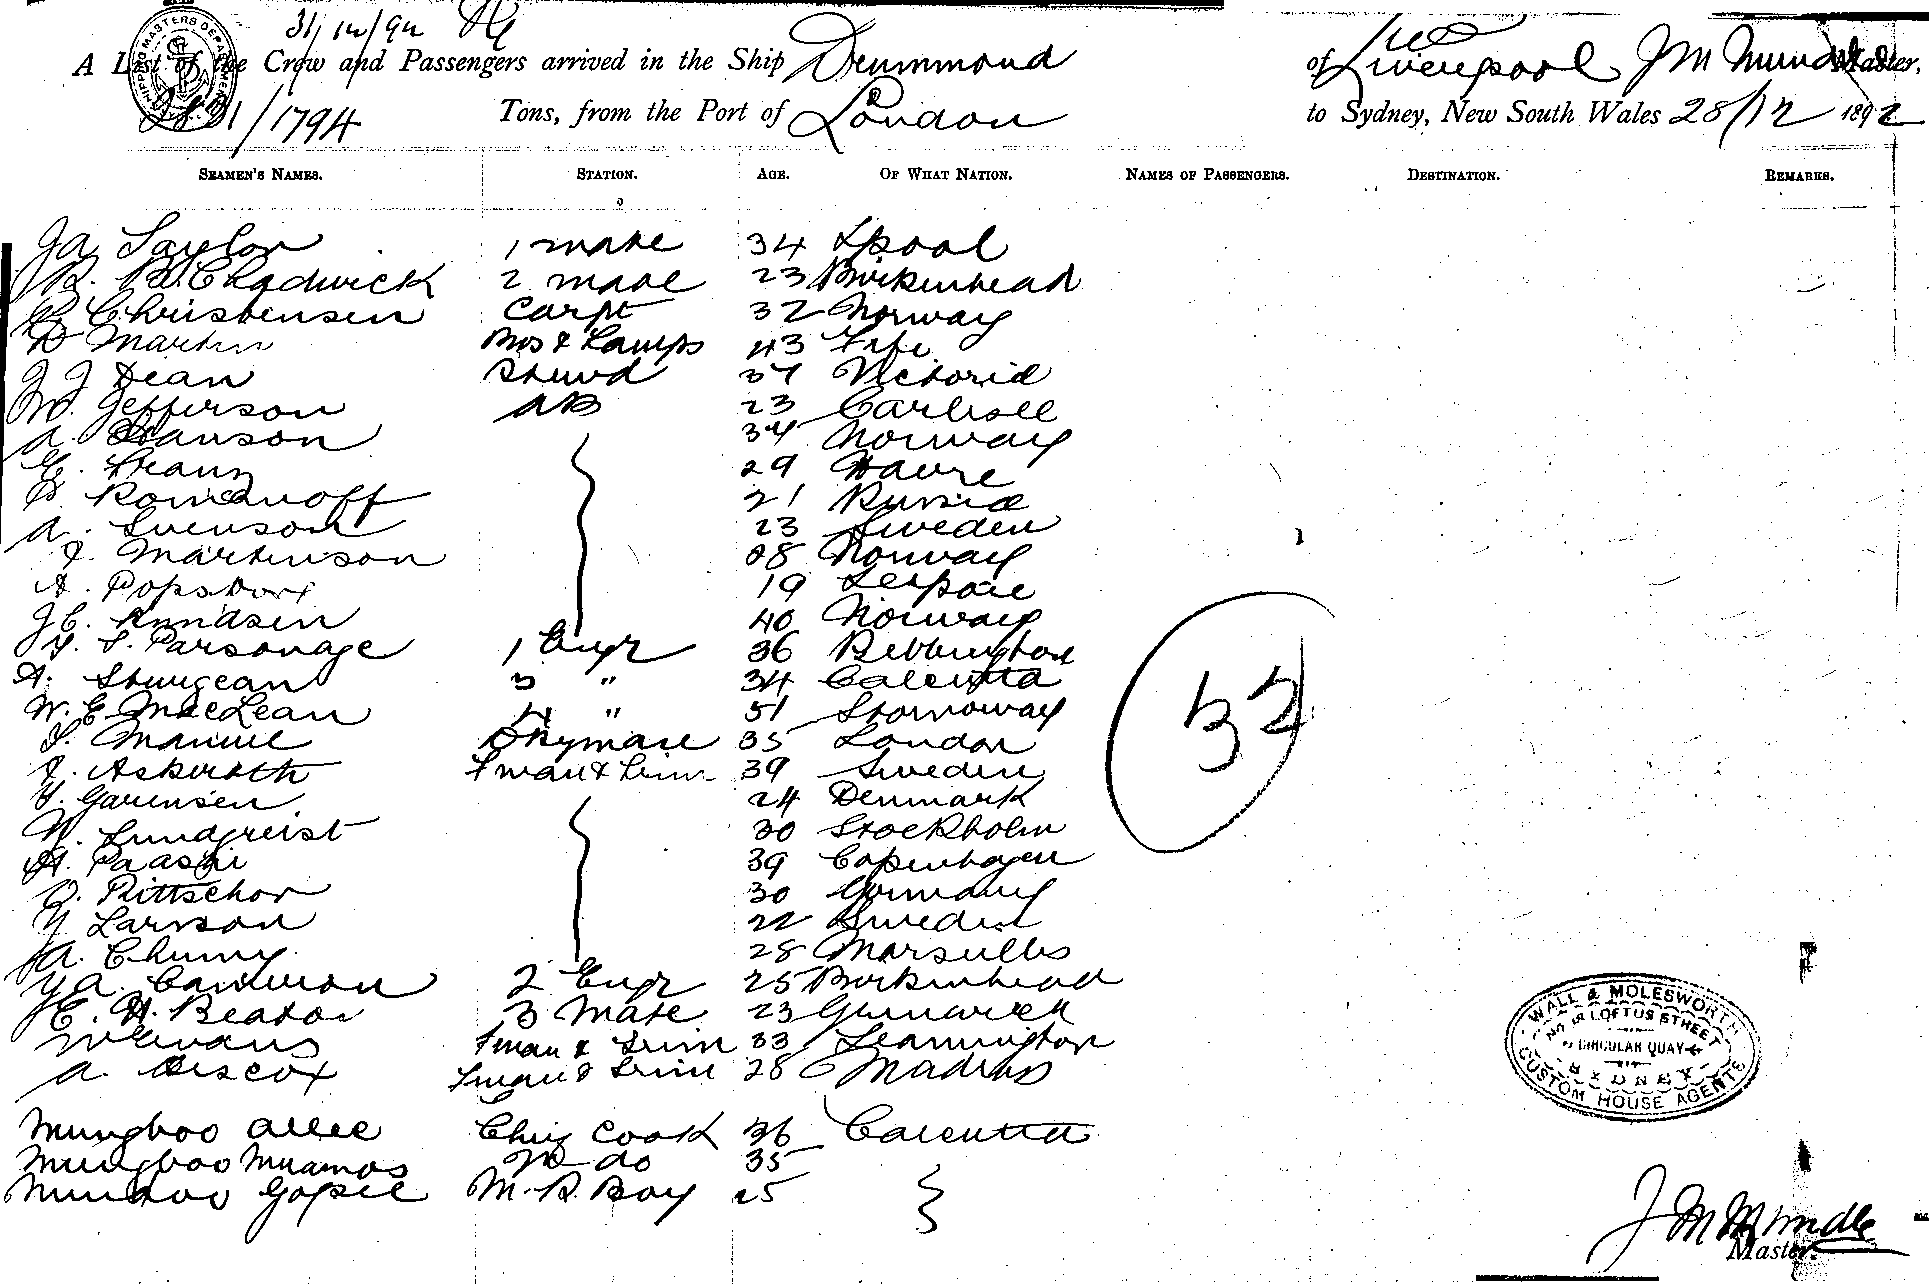 31/12/92
A List of the Crew and Passengers arrived in the Ship Drummond of Liverpool J M Mundle Master,
1794 Tons, from the Port of London to Sydney, New South Wales 28/12 1892
SEAMEN'S NAMES. STATION. AGE. OF WHAT NATION. NAMES OF PASSENGERS. DESTINATION. REMARKS.
Ja Taylor 1 mate 34 Lpool
R. B. Chadwick 2 mate 23 Birkenhead
Christensen Carptr 32 Norway
D Martin Bos & Lamps 43 Fife
J J Dean Stewd 37 Victoria
W. Jefferson AB 23 Carlisle
A. Hanson 34 Norway
E. 29 Havre
Romanoff 21 Russia
A. Svenson 23 Sweden
Martinson 28 Norway
A. 19
J C. Knudsen 40 Norway
S. Parsonage 1 Engr 36 Bebbington
A. Sturgean 3 " 34 Calcutta
W. E. MacLean 4 " 51 Stornoway
Dkymate 35 London
Askeroth Fman & Trim 39 Sweden
24 Denmark
N. Lundqvist 30 Stockholm
Paaske 39 Copenhagen
O. Pittschor 30 Germany
Larsson 22 Sweden
A. 28 Marseilles
Cameron 2 Engr 25 Birkenhead
E. H. Beaton 3 Mate 23 Greenwich
W Evans Fman & Trim 33 Leamington
A. Discox Fman & Trim 28 Madras
Mungboo Allee Chief Cook 36 Calcutta
Mungboo 2nd do 35
Gopee M. R. Boy 25
32
WALL & MOLESWORTH
No 18 LOFTUS STREET
CIRCULAR QUAY
SYDNEY
CUSTOM HOUSE AGENTS
J M Mundle
Master.